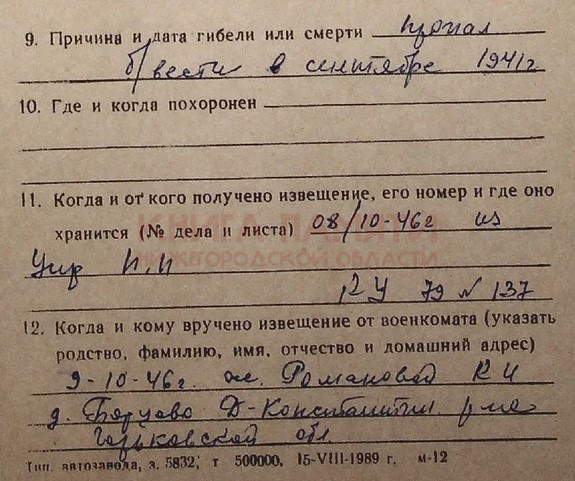 9. Причина и дата гибели или смерти пропал
б/вести в сентябре 1941г
10. Где и когда похоронен
11. Когда и от кого получено извещение, его номер и где оно
хранится (№ дела и листа) 08/10-46г из
КНИГА ПАМЯТИ
НИЖЕГОРОДСКОЙ ОБЛАСТИ
79 N 137
12. Когда и кому вручено извещение от военкомата (указать
родство, фамилию, имя, отчество и домашний адрес)
9-10-46г. ж. Романовой К И
д. Берцово Д-Константин. р-на
Горьковской обл
Тип. автозавода, з. 5832, т 500000, 15-VIII-1989 г. м-12